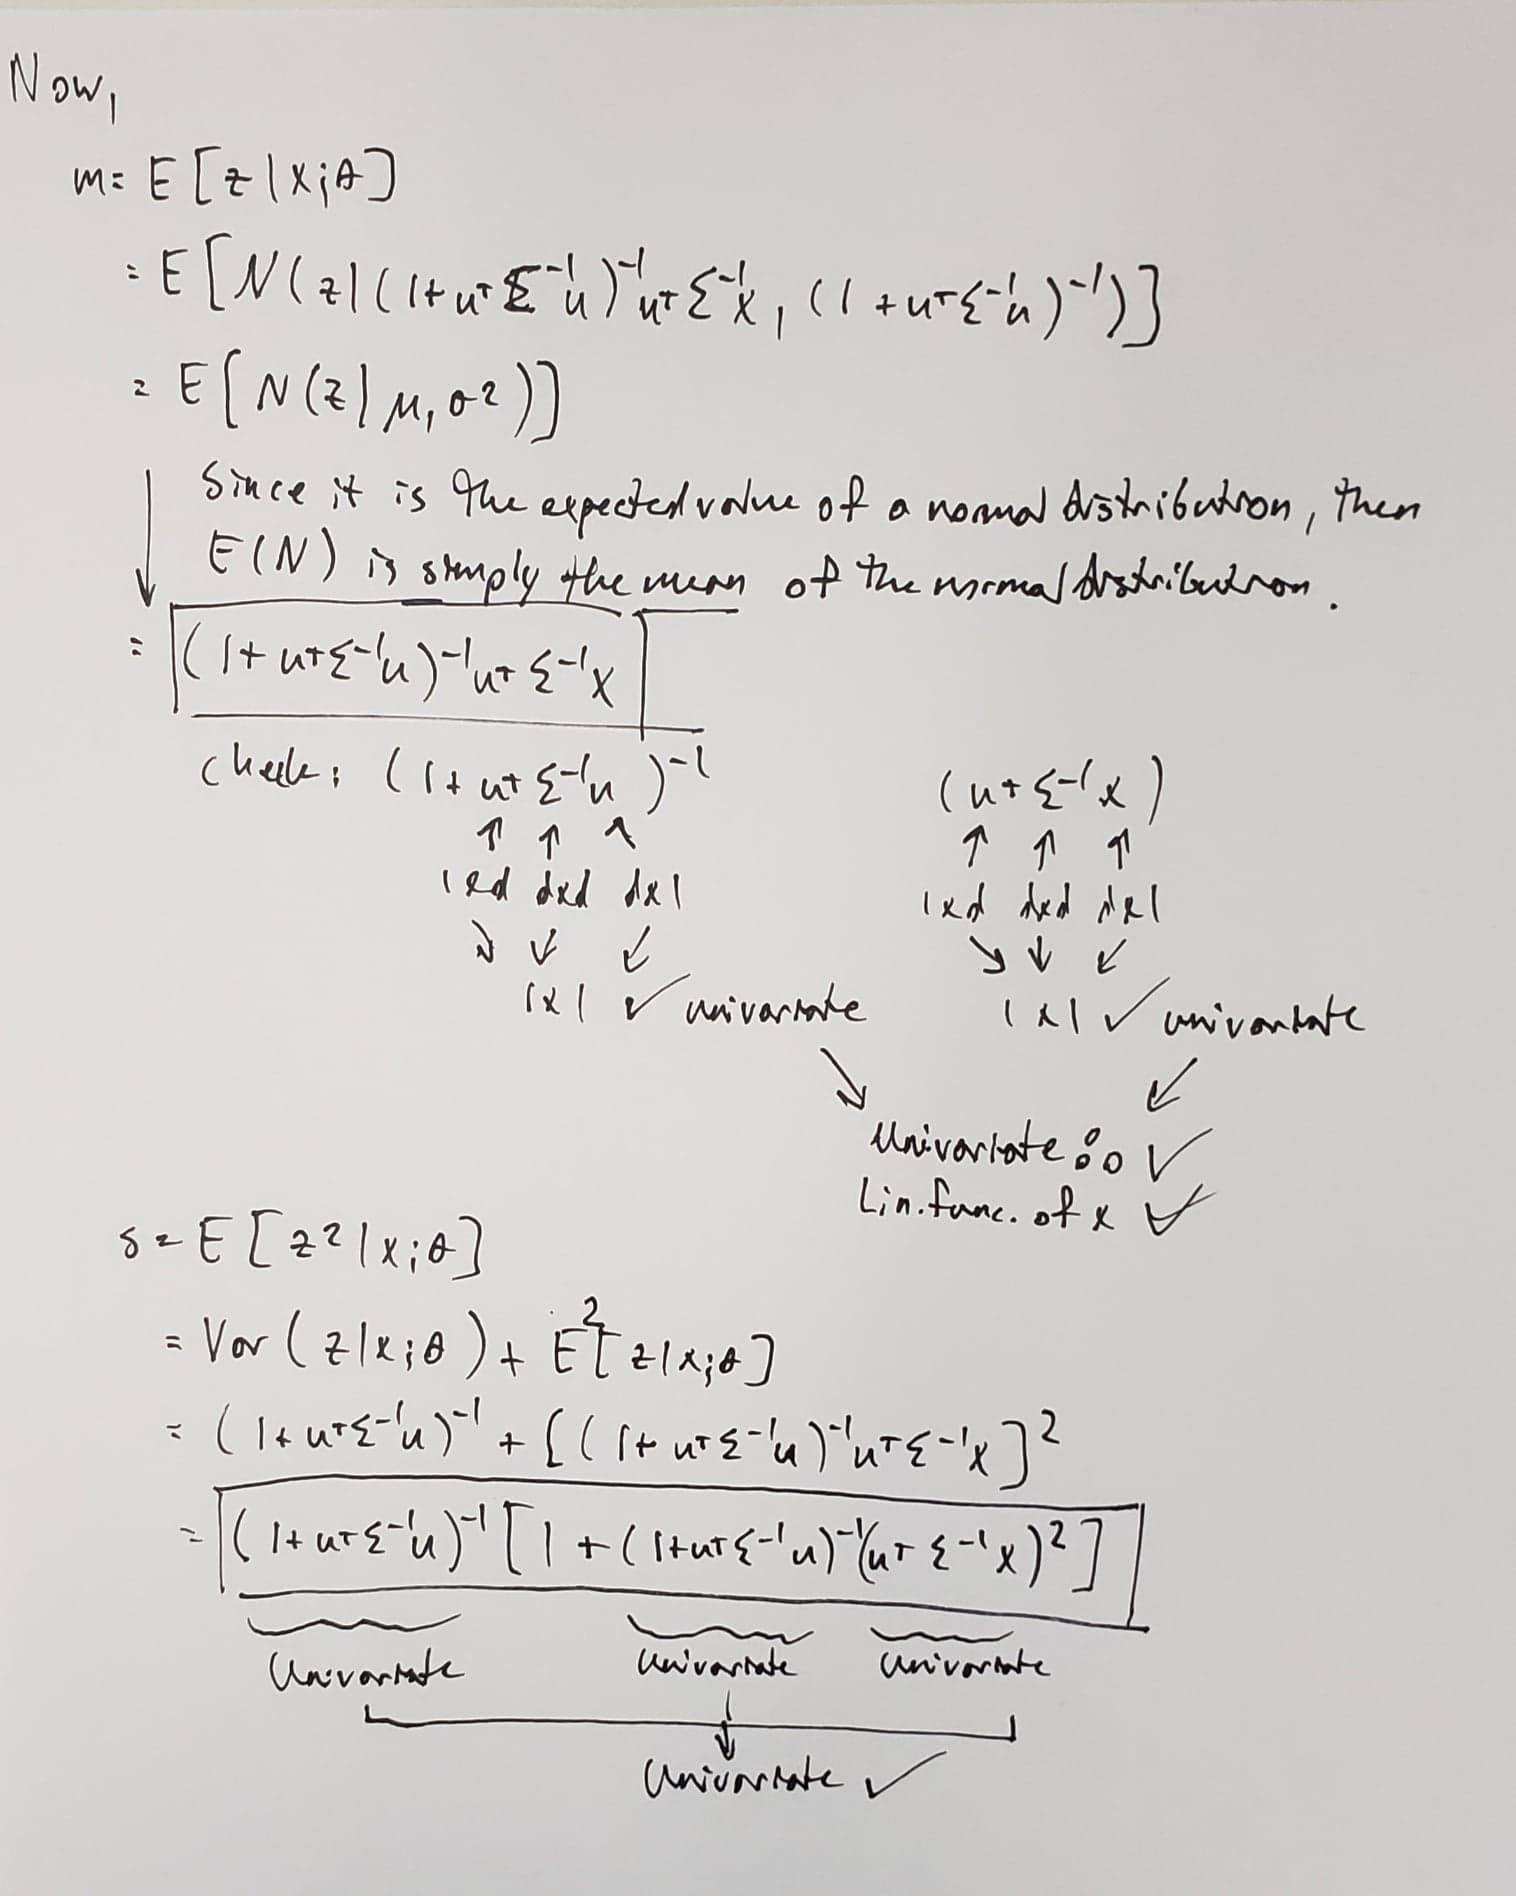 Now,
m = E[z|x;θ]
= E[N(z|(1+uᵀΣ⁻¹u)⁻¹uᵀΣ⁻¹x, (1+uᵀΣ⁻¹u)⁻¹)]
= E[N(z|μ,σ²)]
Since it is the expected value of a normal distribution, then
E(N) is simply the mean of the normal distribution.
= (1+uᵀΣ⁻¹u)⁻¹uᵀΣ⁻¹x
check: (1+uᵀΣ⁻¹u)⁻¹ (uᵀΣ⁻¹x)
↑ ↑ ↑ ↑ ↑ ↑
1xd dxd dx1 1xd dxd dx1
↘ ↓ ↙ ↘ ↓ ↙
1x1 ✓ univariate 1x1 ✓ univariate
↘ ↙
Univariate :o ✓
Lin. func. of x ✓
s = E[z²|x;θ]
= Var(z|x;θ) + E²[z|x;θ]
= (1+uᵀΣ⁻¹u)⁻¹ + [(1+uᵀΣ⁻¹u)⁻¹uᵀΣ⁻¹x]²
= (1+uᵀΣ⁻¹u)⁻¹[1+(1+uᵀΣ⁻¹u)⁻¹(uᵀΣ⁻¹x)²]
Univariate Univariate Univariate
↓
Univariate ✓